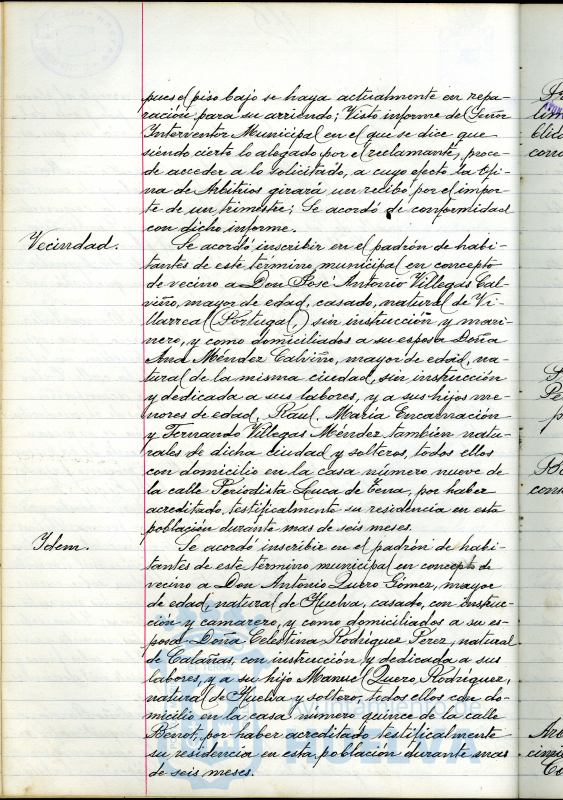 pues el piso bajo se haya actualmente en repa-
ración para su arriendo; Visto informe del Señor
Interventor Municipal en el que se dice que
siendo cierto lo alegado por el reclamante, proce-
de acceder a lo solicitado, a cuyo efecto la Ofi-
na de Arbitrios girará un recibo por el impor-
te de un trimestre; Se acordó de conformidad
con dicho informe.
Vecindad. Se acordó inscribir en el padrón de habi-
tantes de este término municipal en concepto
de vecino a Don José Antonio Villegas Cal-
viño, mayor de edad, casado, natural de Vi-
llarrea (Portugal,) sin instrucción y mari-
nero, y como domiciliados a su esposa Doña
Ana Méndez Calviño, mayor de edad, na-
tural de la misma ciudad, sin instrucción
y dedicada a sus labores, y a sus hijos me-
nores de edad, Raul, María Encarnación
y Fernando Villegas Méndez, también natu-
rales de dicha ciudad y solteros, todos ellos
con domicilio en la casa número nueve de
la calle Periodista Luca de Tena, por haber
acreditado testificalmente su residencia en esta
población durante mas de seis meses.
Idem. Se acordó inscribir en el padrón de habi-
tantes de este término municipal en concepto de
vecino a Don Antonio Quero Gómez, mayor
de edad, natural de Huelva, casado, con instruc-
ción y camarero, y como domiciliados a su es-
posa Doña Celestina Rodríguez Pérez, natural
de Calañas, con instrucción y dedicada a sus
labores, y a su hijo Manuel Quero Rodríguez,
natural de Huelva y soltero, todos ellos con do-
micilio en la casa número quince de la calle
Benot, por haber acreditado testificalmente
su residencia en esta población durante mas
de seis meses.
Ayuntamiento de